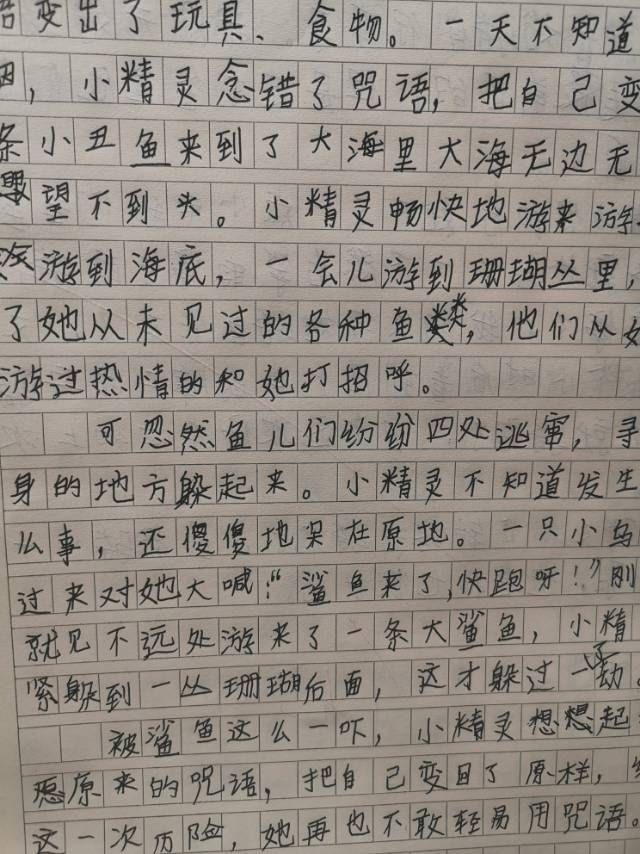 变出了玩具、食物。一天不知道
,小精灵念错了咒语,把自己变
条小丑鱼来到了大海里大海无边无
望不到头。小精灵畅快地游来游
游到海底,一会儿游到珊瑚丛里,
了她从未见过的各种鱼类,他们从她
游过热情的和她打招呼。
可忽然鱼儿们纷纷四处逃窜,寻
身的地方躲起来。小精灵不知道发生
么事,还傻傻地呆在原地。一只小乌
过来对她大喊:“鲨鱼来了,快跑呀!”刚
就见不远处游来了一条大鲨鱼,小精
紧躲到一丛珊瑚后面,这才躲过了一劫。
被鲨鱼这么一吓,小精灵想想起
愿原来的咒语,把自己变回了原样,
这一次历险,她再也不敢轻易用咒语。